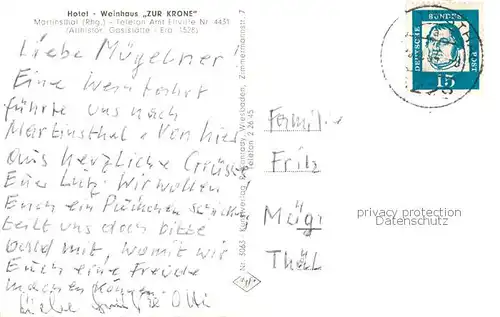 Hotel - Weinhaus „ZUR KRONE"
Martinsthal (Rhg.) - Telefon Amt Eltville Nr. 4431
(Althistor. Gaststätte - Erb. 1528)
Liebe Mügelner!
Eine Weinfahrt
führte uns nach
Martinsthal. Von hier
aus herzliche Grüße
Euer Lutz. Wir wollen
Euch ein Päckchen schicken
teilt uns doch bitte
bald mit, womit wir
Euch eine Freude
machen können.
Liebe Grüße Otti
Nr. 5063 Kunstverlag R. Conrady, Wiesbaden, Zimmermannstr. 7
Telefon 2 26 45
DEUTSCHE
BUNDES
POST
15
Familie
Fritz
Müg
Thal
privacy protection
Datenschutz